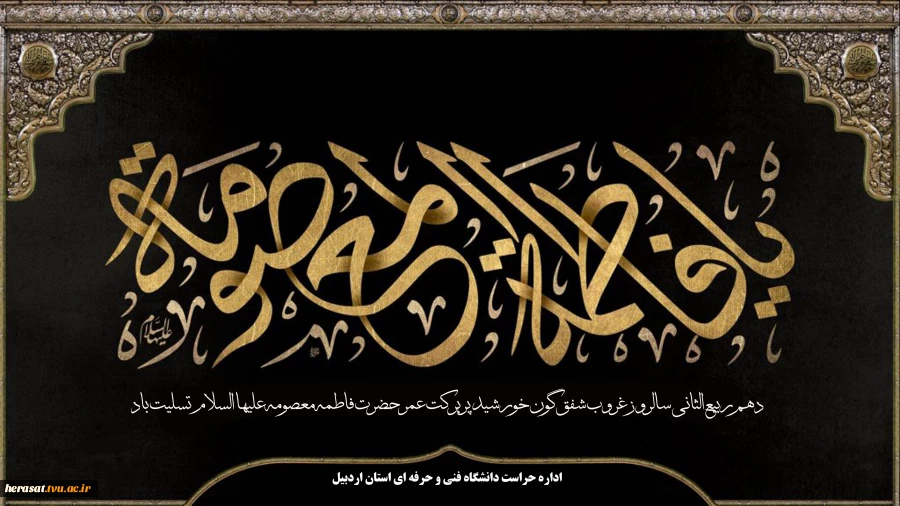 یا فاطمة المعصومة
علیها السلام
دهم ربیع الثانی سالروز غروب شفق گون خورشید پربرکت عمر حضرت فاطمه معصومه علیها السلام تسلیت باد
اداره حراست دانشگاه فنی و حرفه ای استان اردبیل
herasat.tvu.ac.ir